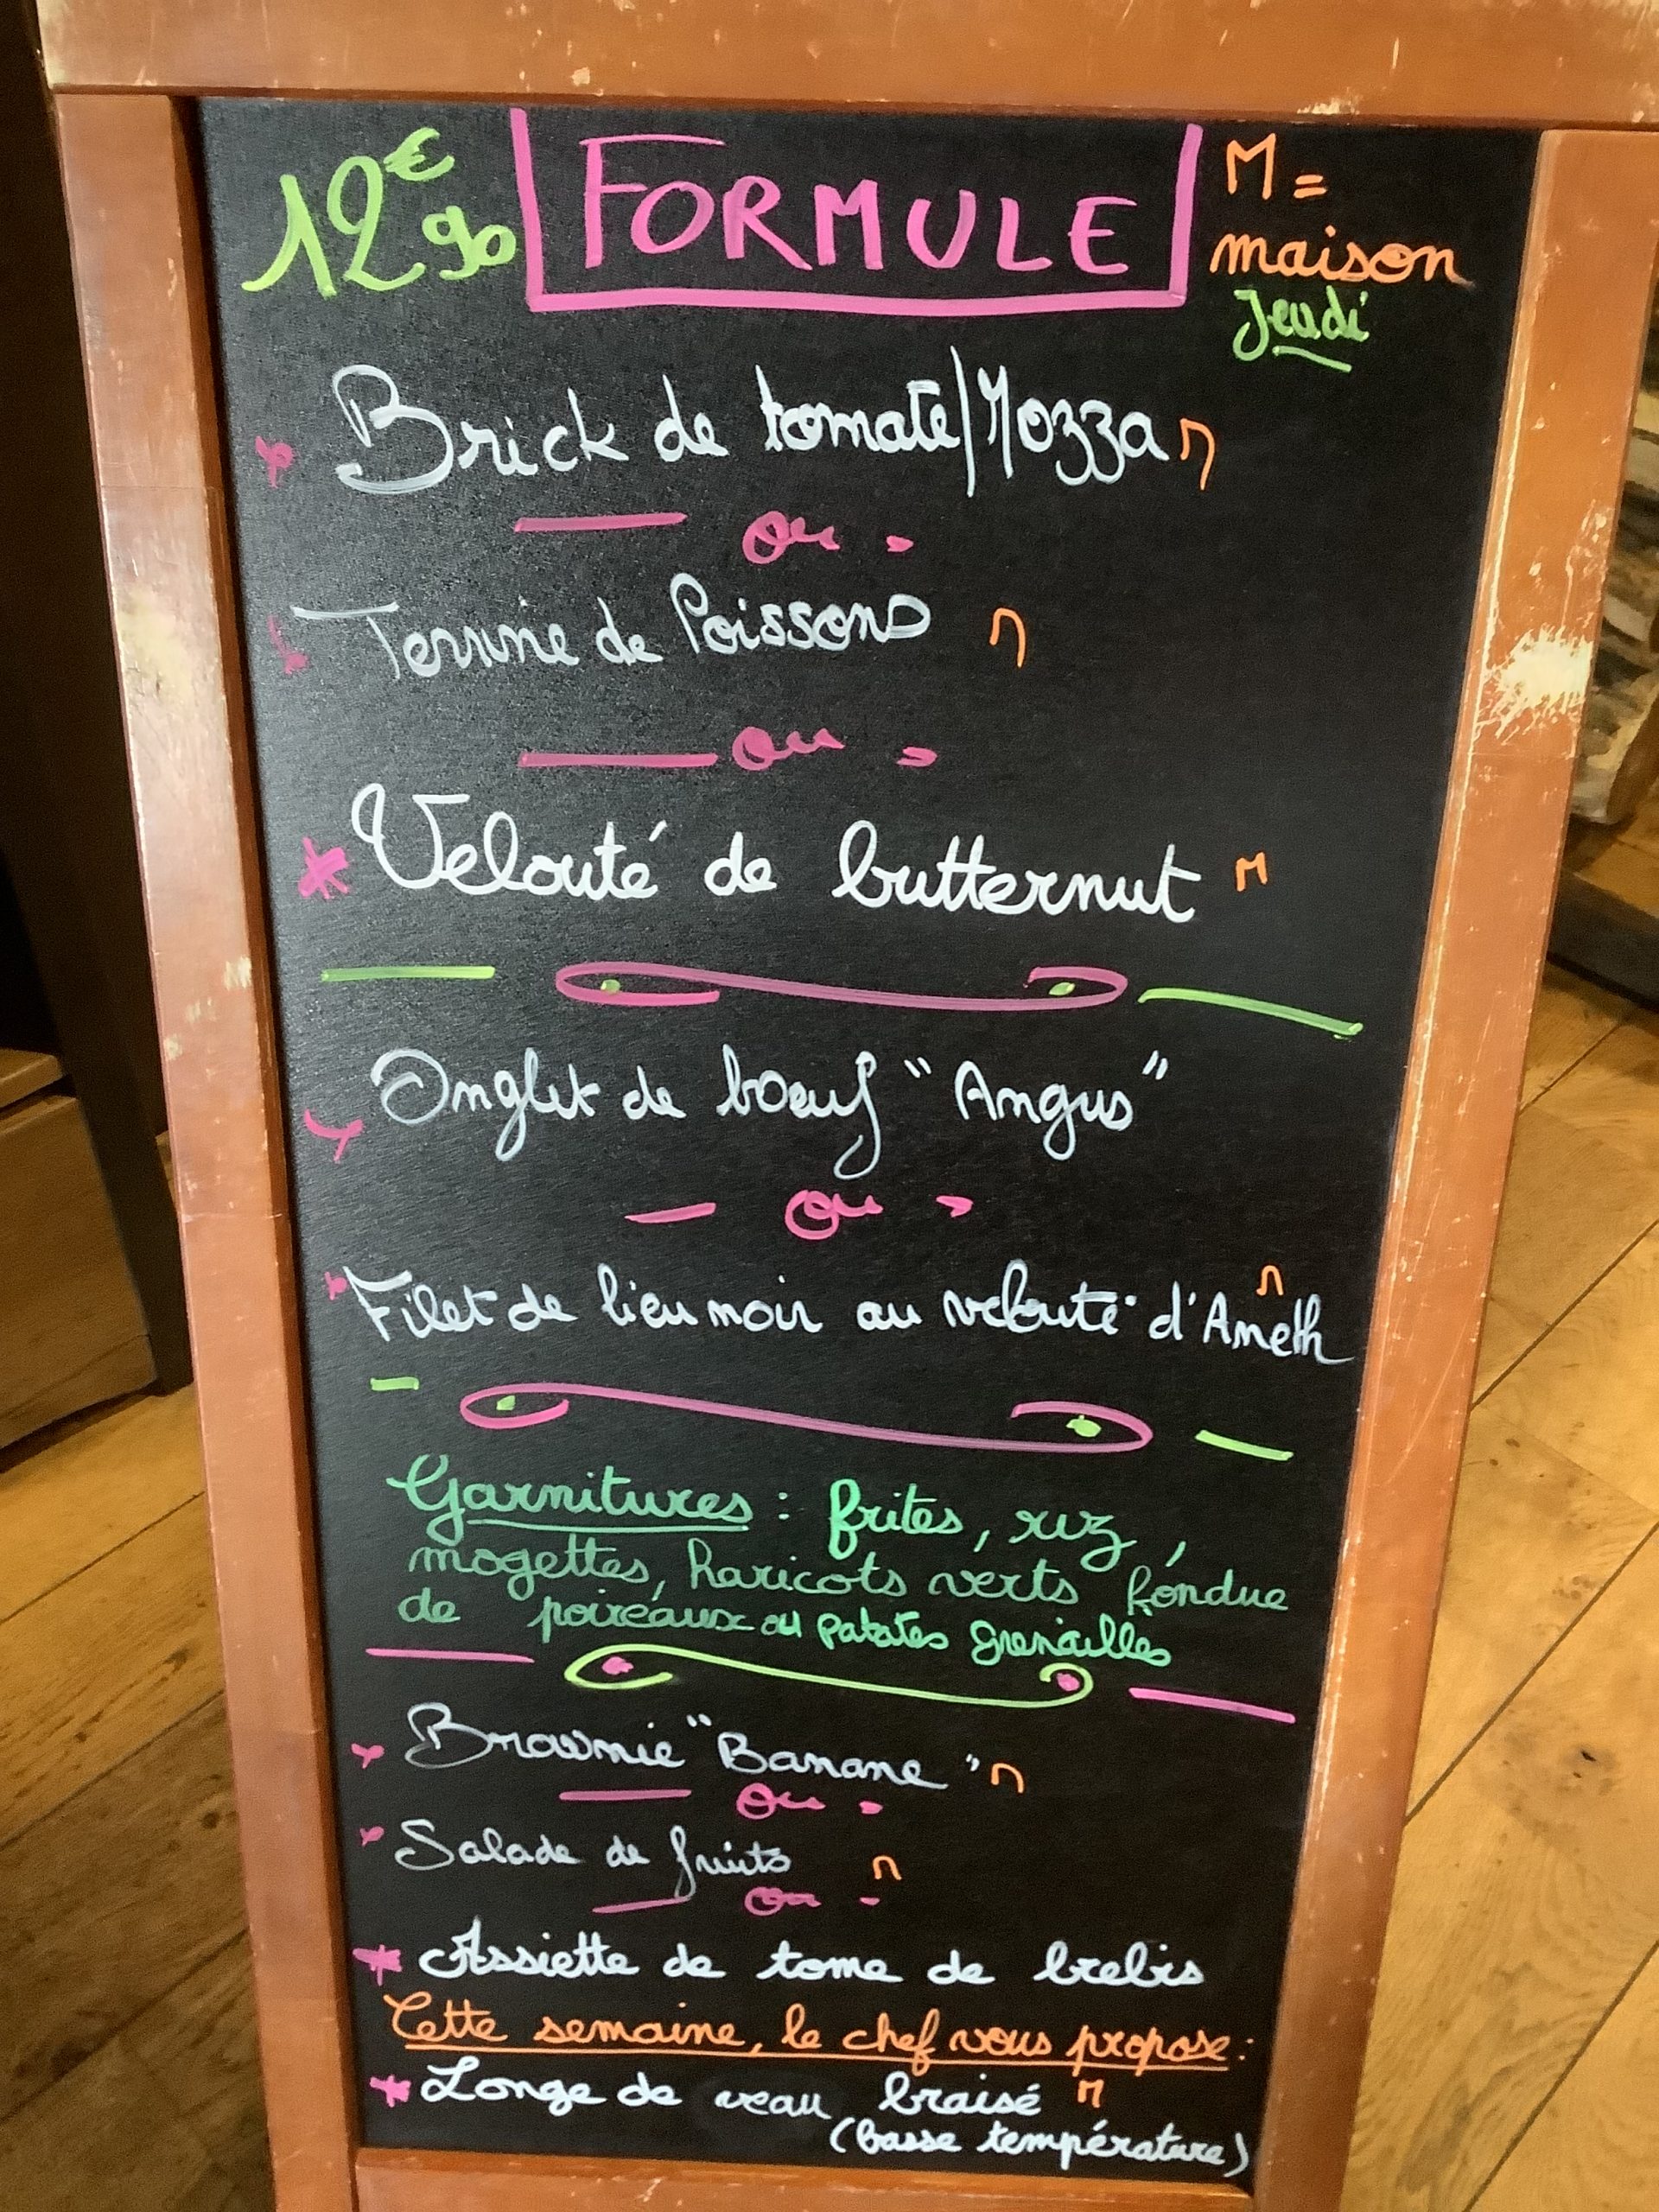 12€90 FORMULE M =
maison
Jeudi
Brick de tomate/Mozza M
ou
Terrine de Poissons M
ou
Velouté de butternut M
Onglet de bœuf "Angus"
ou
Filet de lieu noir au velouté d'Aneth M
Garnitures : frites, riz,
mogettes, haricots verts fondue
de poireaux ou patates grenailles
Brownie "Banane" M
ou
Salade de fruits M
ou
Assiette de tome de brebis
Cette semaine, le chef vous propose :
Longe de veau braisé M
(basse température)